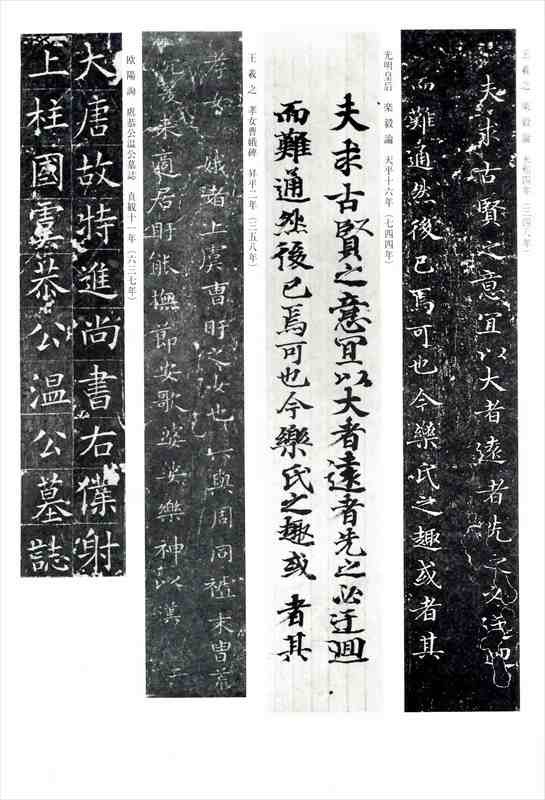 王羲之 楽毅論 永和四年(三四八年)
夫求古賢之意宜以大者遠者先之必迂迴
而難通然後已焉可也今樂氏之趣或者其
光明皇后 楽毅論 天平十六年(七四四年)
夫求古賢之意宜以大者遠者先之必迂迴
而難通然後已焉可也今樂氏之趣或者其
王羲之 孝女曹娥碑 昇平二年(三五八年)
孝女 娥者上虞曹盱之女也 與周同祖末冑荒
沉爰来適居盱能撫節安歌婆娑樂神以漢
欧陽詢 虞恭公温公墓誌 貞観十一年(六三七年)
大唐故特進尚書右僕射
上柱國虞恭公温公墓誌